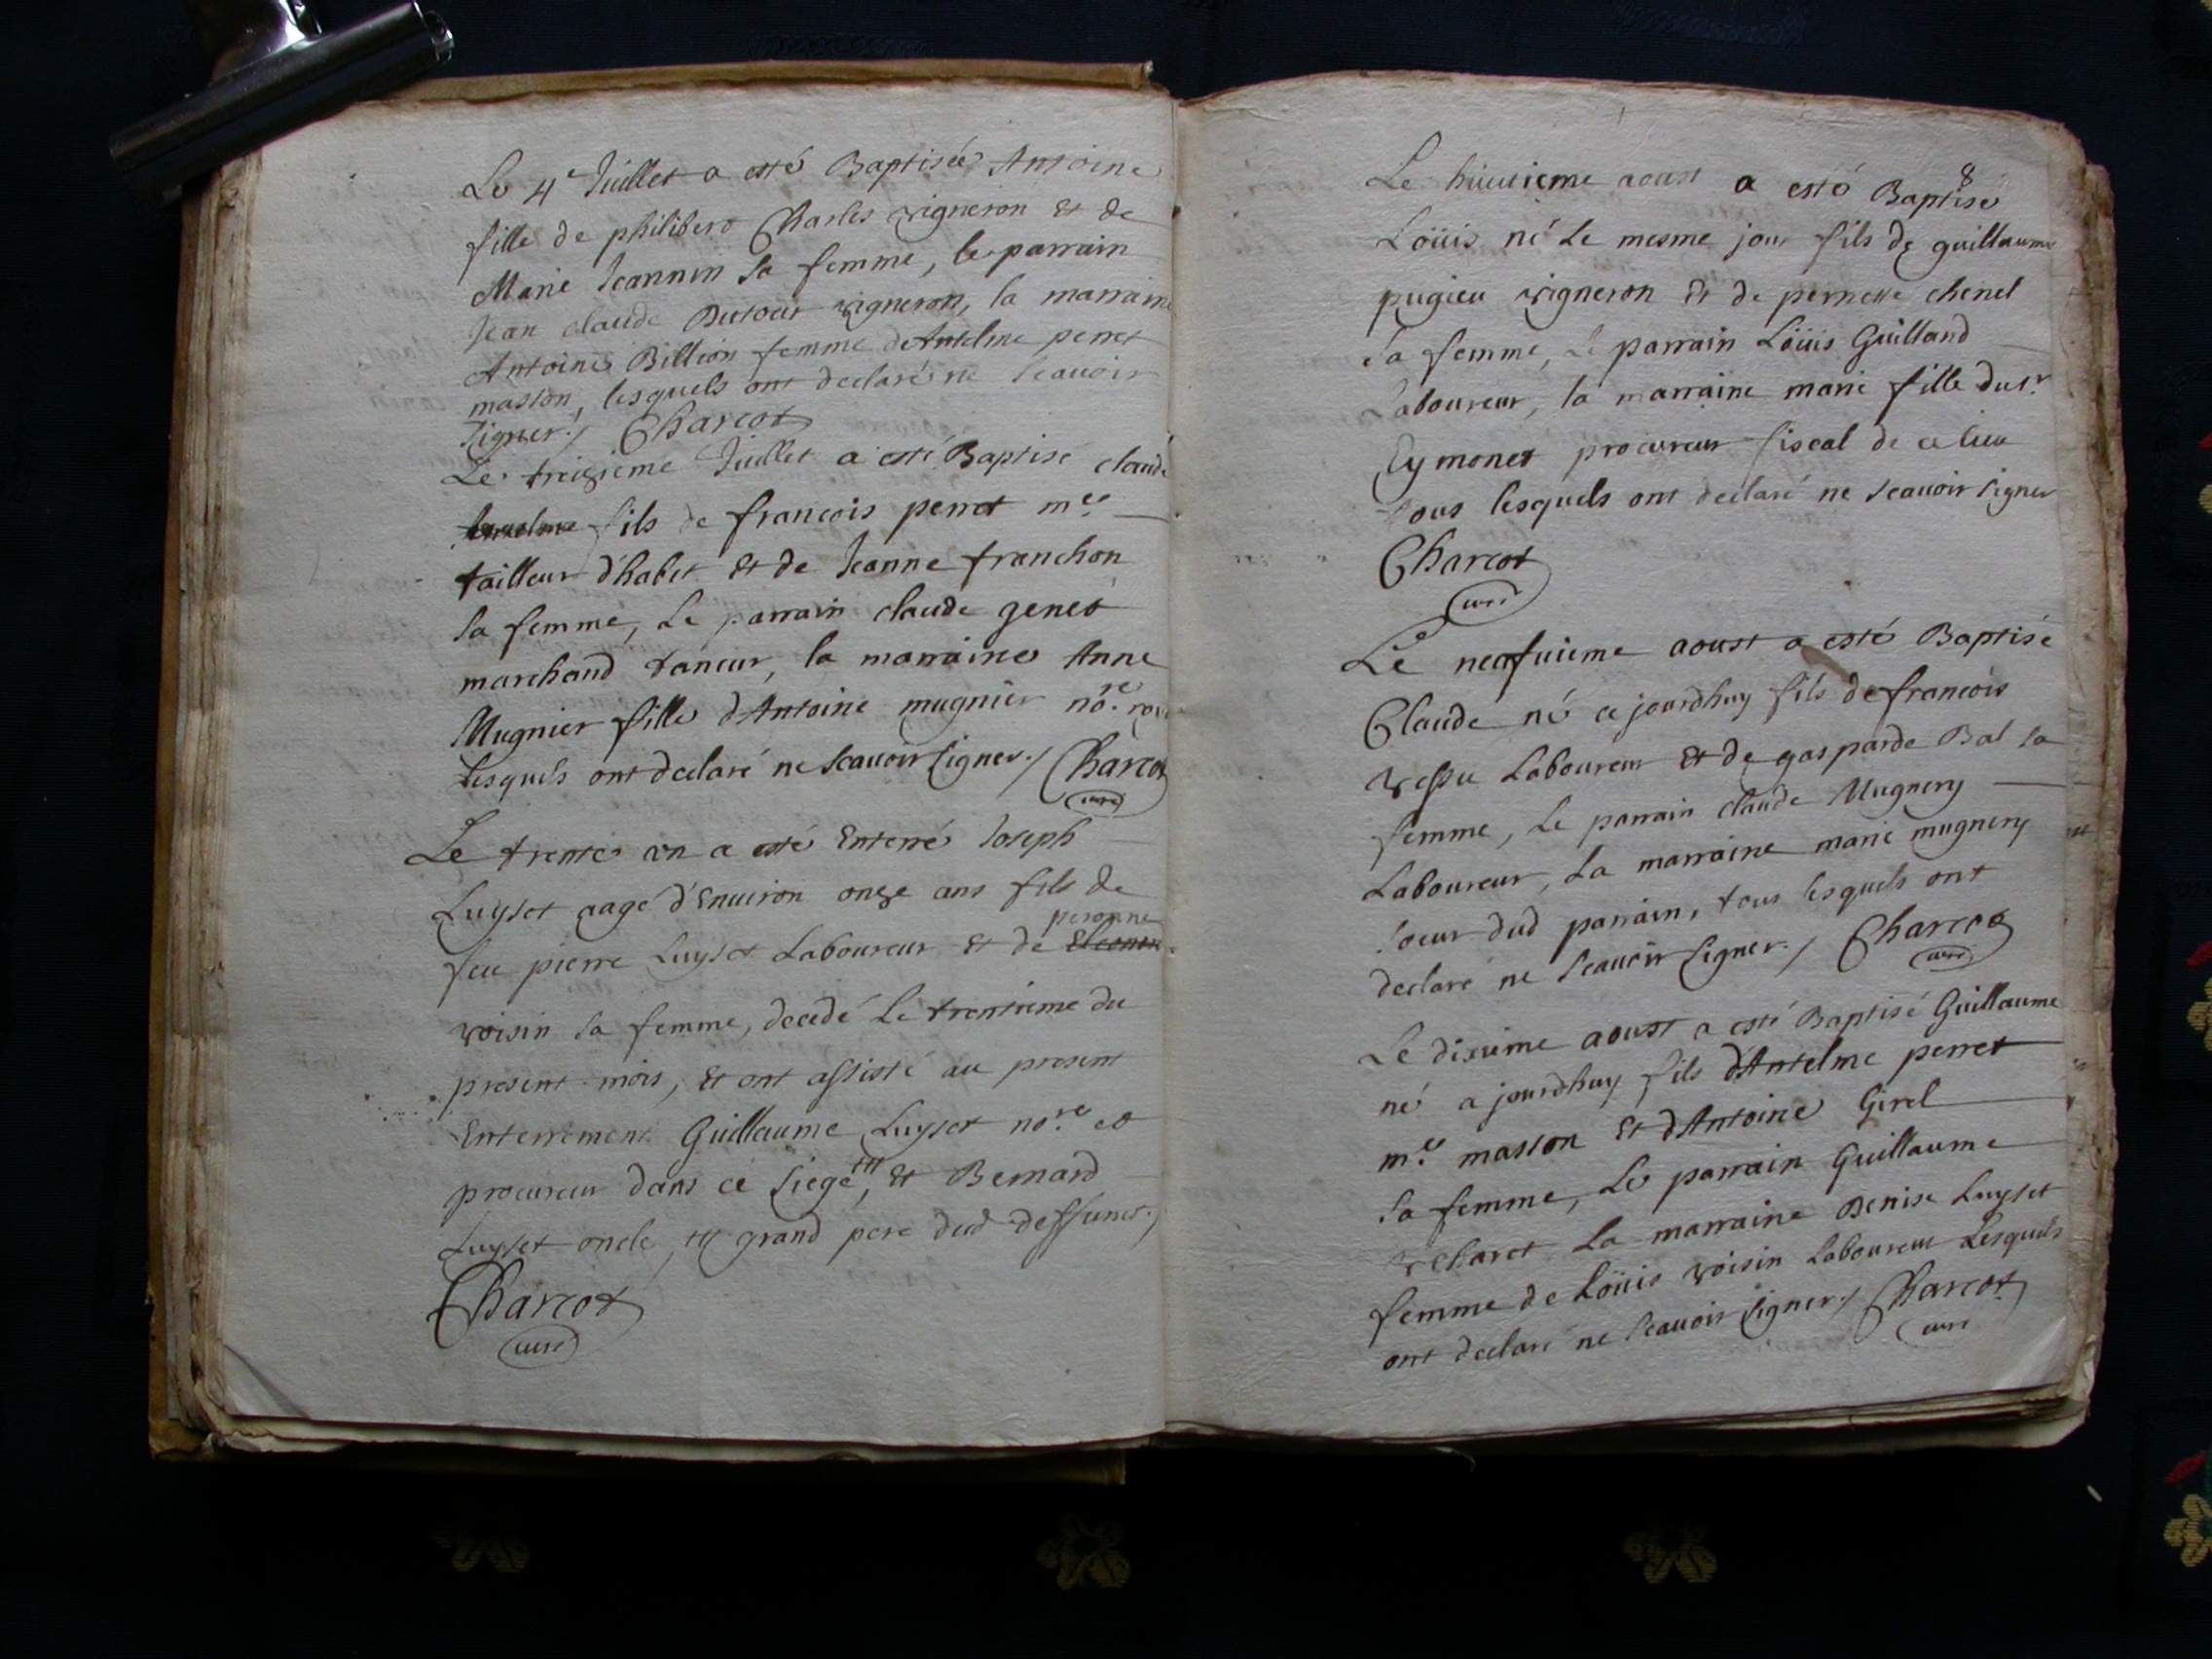 Le 4e Juillet a esté Baptisée Antoine
fille de philibert Charles vigneron Et de
Marie Jeannin sa femme, le parrain
Jean claude Dutour vigneron, la marraine
Antoine Billion femme dAntelme perret
masson, lesquels ont declaré ne scauoir
signer./ Charcot
Le treizieme Juillet a esté Baptisé claude
fils de francois perret me.
tailleur d'habit Et de Jeanne franchon
sa femme, Le parrain claude genet
marchand taneur, la marraine Anne
Mugnier fille d'Antoine mugnier nore.
Lesquels ont declaré ne scauoir signer./ Charcot
curé
Le trente vn a esté Enterré Joseph
Luyset aagé d'Enuiron onze ans fils de
peronne
feu pierre Luyset Laboureur Et de
voisin sa femme, decedé Le trentieme du
present mois, Et ont assisté au present
Enterrement Guillaume Luyset nore. et
procureur dans ce siege, Et Bernard
Luyset oncle, grand pere dud deffunct./
Charcot
curé
8
Le huitieme aoust a esté Baptisé
Loüis né Le mesme jour fils de guillaume
pugieu vigneron Et de pernette chenel
sa femme, Le parrain Loüis Guilland
Laboureur, la marraine marie fille dusr.
Eymonet procureur fiscal de ce lieu
tous lesquels ont declaré ne scauoir signer
Charcot
curé
Le neufuieme aoust a esté Baptisé
Claude né ce jourdhuy fils de francois
vespu Laboureur Et de gasparde Bal sa
femme, Le parrain claude Mugnery
Laboureur, La marraine marie mugnery
soeur dud parrain, tous lesquels ont
declaré ne scauoir signer./ Charcot
curé
Le dixieme aoust a esté Baptisé Guillaume
né a jourdhuy fils d'Antelme perret
me. masson Et d'Antoine Girel
sa femme, Le parrain Guillaume
La marraine Denise Luyset
femme de Loüis voisin Laboureur Lesquels
ont declaré ne scauoir signer./ Charcot
curé